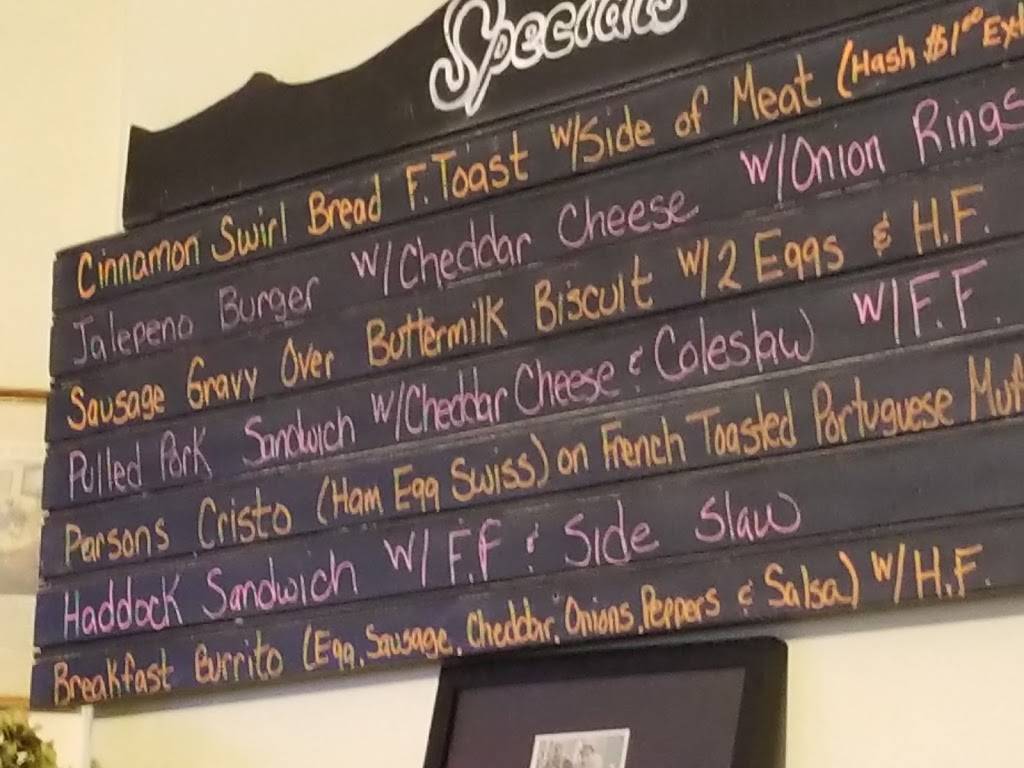 Specials
Cinnamon Swirl Bread F. Toast W/Side of Meat (Hash $1.00 Ext
Jalepeno Burger W/Cheddar Cheese W/Onion Rings
Sausage Gravy Over Buttermilk Biscuit W/2 Eggs & H.F.
Pulled Pork Sandwich W/Cheddar Cheese & Coleslaw W/F.F.
Parsons Cristo (Ham Egg Swiss) on French Toasted Portuguese Muf
Haddock Sandwich W/ F.F & Side Slaw
Breakfast Burrito (Egg, Sausage, Cheddar, Onions, Peppers & Salsa) W/H.F.